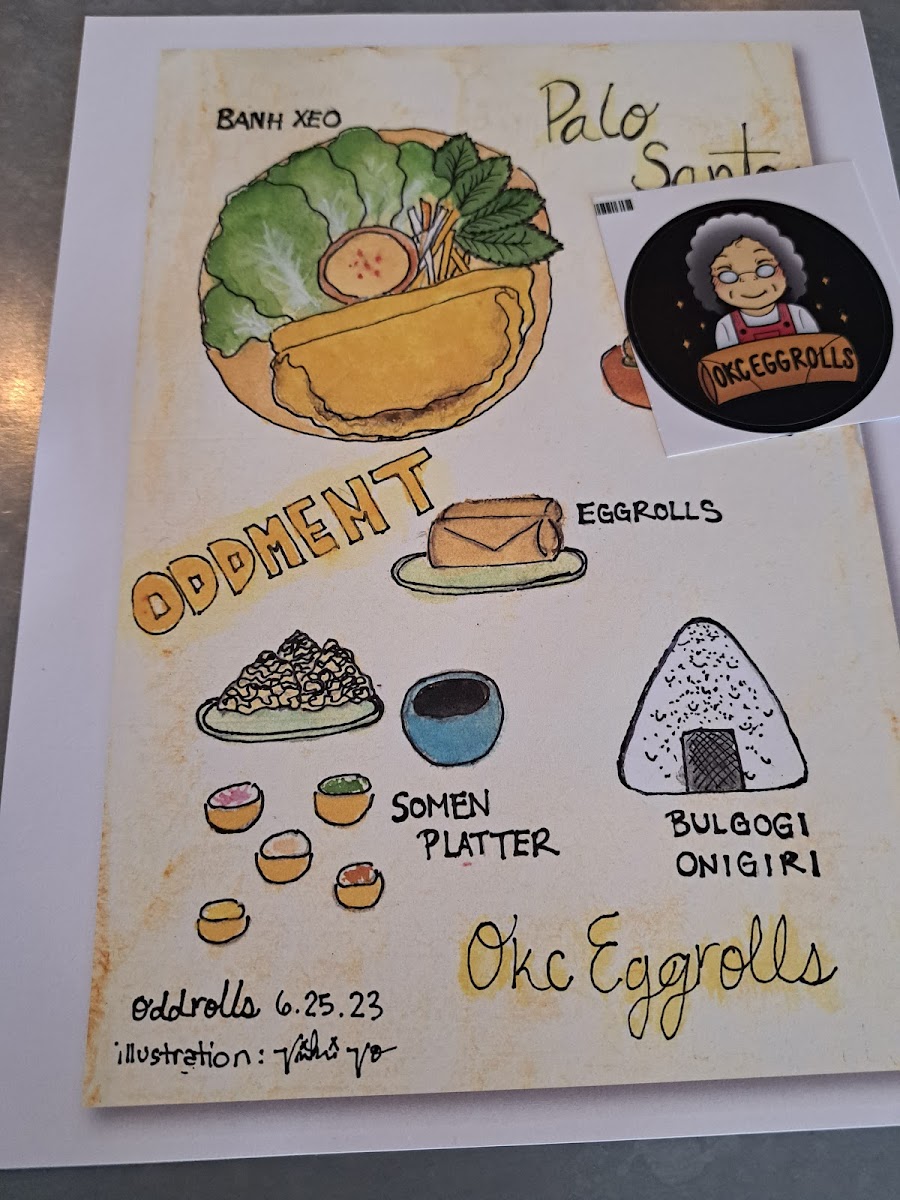 BANH XEO
Palo
Santo
OKC EGGROLLS
ODDMENT
EGGROLLS
SOMEN
PLATTER
BULGOGI
ONIGIRI
Okc Eggrolls
oddrolls 6.25.23
illustration: